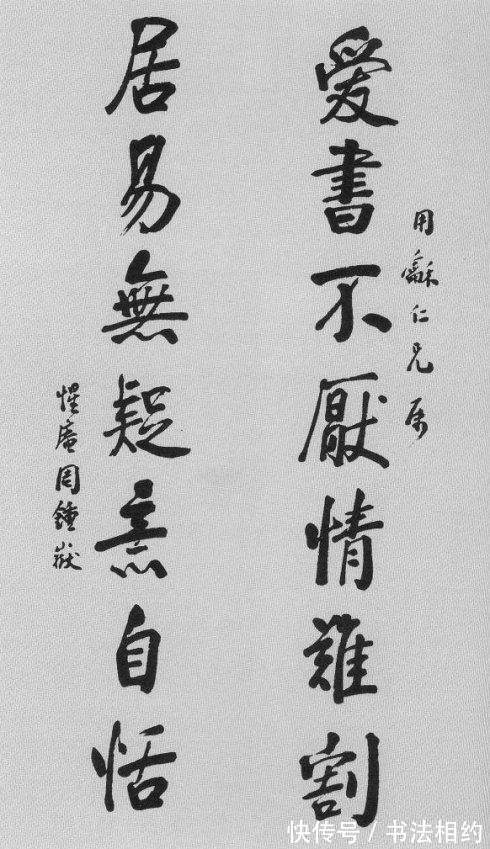 用龢仁兄属
爱書不厭情難割
居易無疑意自恬
惺庵周鍾嶽
快传号 / 书法相约